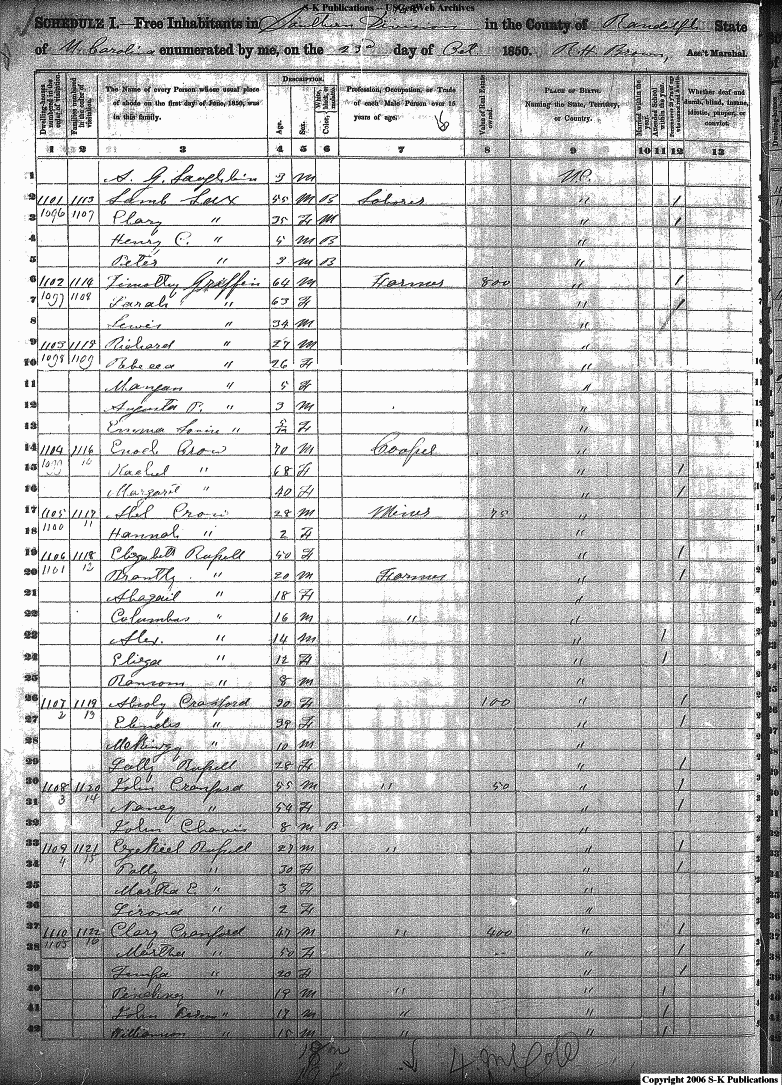 S-K Publications -- USGenWeb Archives
SCHEDULE I.—Free Inhabitants in Southern Division in the County of Randolph State
of N. Carolina enumerated by me, on the 23d day of Oct. 1850. R. H. Brown, Ass't Marshal.
Dwelling-houses numbered in the order of visitation.
Families numbered in the order of visitation.
The Name of every Person whose usual place of abode on the first day of June, 1850, was in this family.
DESCRIPTION.
Age.
Sex.
White, black, or mulatto. Color,
Profession, Occupation, or Trade of each Male Person over 15 years of age.
Value of Real Estate owned.
PLACE OF BIRTH. Naming the State, Territory, or Country.
Married within the year.
Attended School within the year.
Whether deaf and dumb, blind, insane, idiotic, pauper, or convict.
1 2 3 4 5 6 7 8 9 10 11 12 13
1 A. G. Laughlin 3 M NC.
2 1101 1113 Lamb 55 M B Laborer " /
3 1096 1107 Clary " 35 F M " /
4 Henry C. " 5 M B "
5 Peter " 3 M B "
6 1102 1114 Timothy Griffin 64 M Farmer 800 " /
7 1097 1108 Sarah " 63 F " /
8 Lewis " 34 M "
9 1103 1115 Richard " 27 M "
10 1098 1109 Rebecca " 26 F "
11 " 5 F "
12 Augusta P. " 3 M "
13 Emma " F "
14 1104 1116 Enoch Crow 70 M Cooper "
15 1099 10 Rachel " 68 F " /
16 Margaret " 40 F " /
17 1105 1117 Abel Crow 28 M Miner 75 "
18 1100 11 Hannah " 2 F "
19 1106 1118 Elizabeth Russell 50 F " /
20 1101 12 Brantly " 20 M Farmer " /
21 Abagail " 18 F "
22 Columbus " 16 M " "
23 Alex. " 14 M " /
24 Eliza " 12 F " /
25 Ransom " 8 M "
26 1107 1119 Cranford 30 F 100 " /
27 2 13 " 39 F " /
28 McKinzy " 10 M "
29 Russell 28 F " /
30 1108 1120 John Cranford 55 M " 50 " /
31 3 14 Nancy " 54 F " /
32 John Chavis 8 M B "
33 1109 1121 Ezekiel Russell 27 M " " /
34 4 15 Polly " 30 F " /
35 Martha E. " 3 F "
36 " 2 F "
37 1110 1122 Clary Cranford 47 M " 400 " /
38 1105 16 Martha " 50 F " /
39 " 20 F " /
40 " 19 M " " /
41 John " 17 M " " /
42 Williamson " 15 M " /
Copyright 2006 S-K Publications